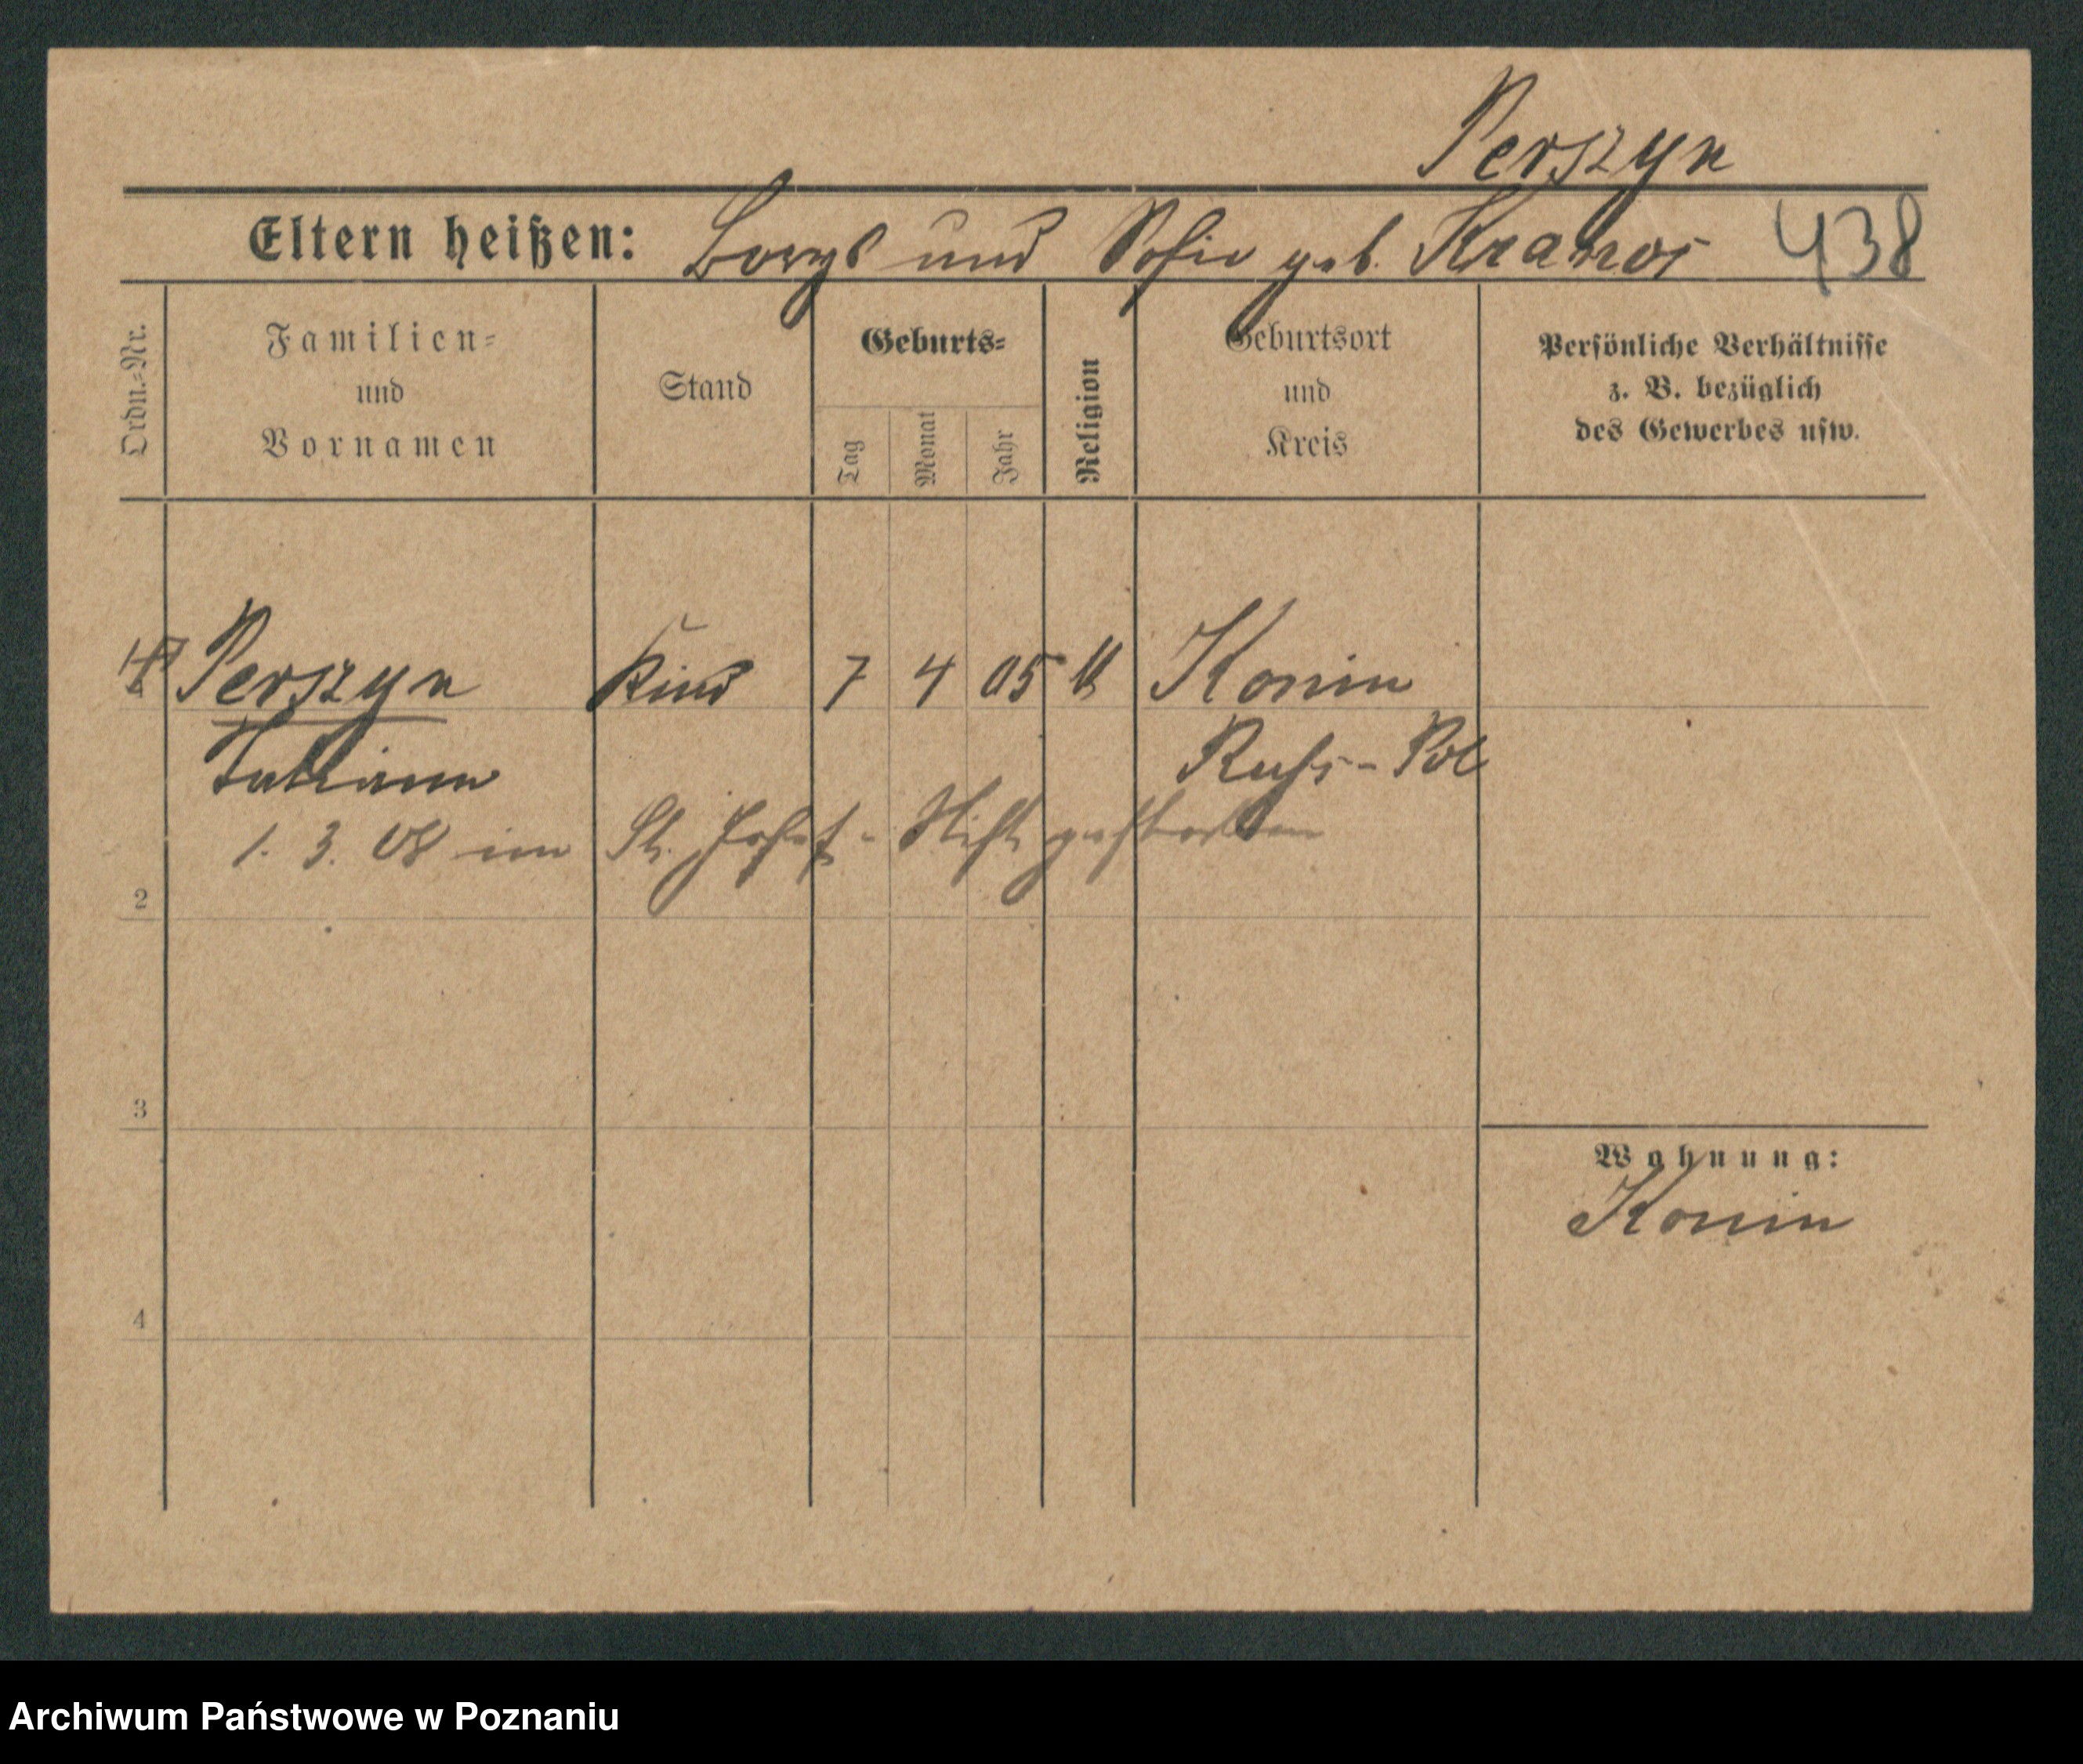 Perszyn
Eltern heißen: und Sofie geb. 438
Ordn.-Nr.
Familien-
und
Vornamen
Stand
Geburts-
Tag
Monat
Jahr
Religion
Geburtsort
und
Kreis
Persönliche Verhältnisse
z. B. bezüglich
des Gewerbes usw.
Perszyn Kind 7 4 05 Konin
Russ-Pol
1. 3. 08 im St. Josef-Stift gestorben
2
3
Wohnung:
Konin
4
Archiwum Państwowe w Poznaniu